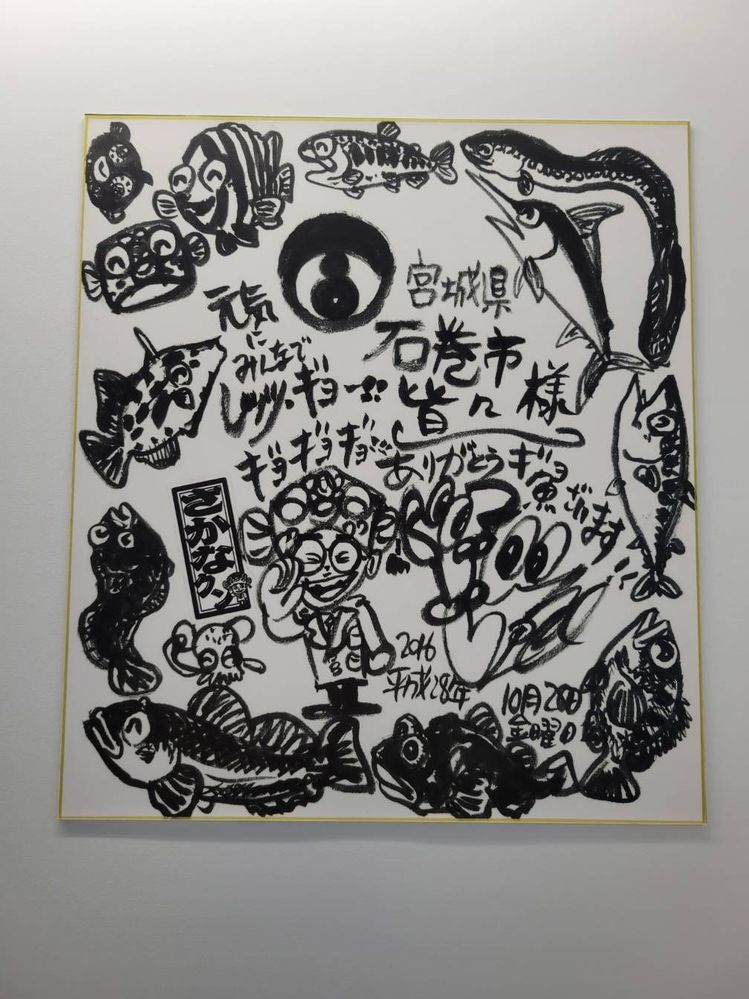 宮城県
石巻市
皆々様
元気
に
みんなで
レッツ・ギョー!!
ギョギョギョ!!
ありがとうギョ
魚ざいます
さかなクン
2016
平成28年
10月28日
金曜日